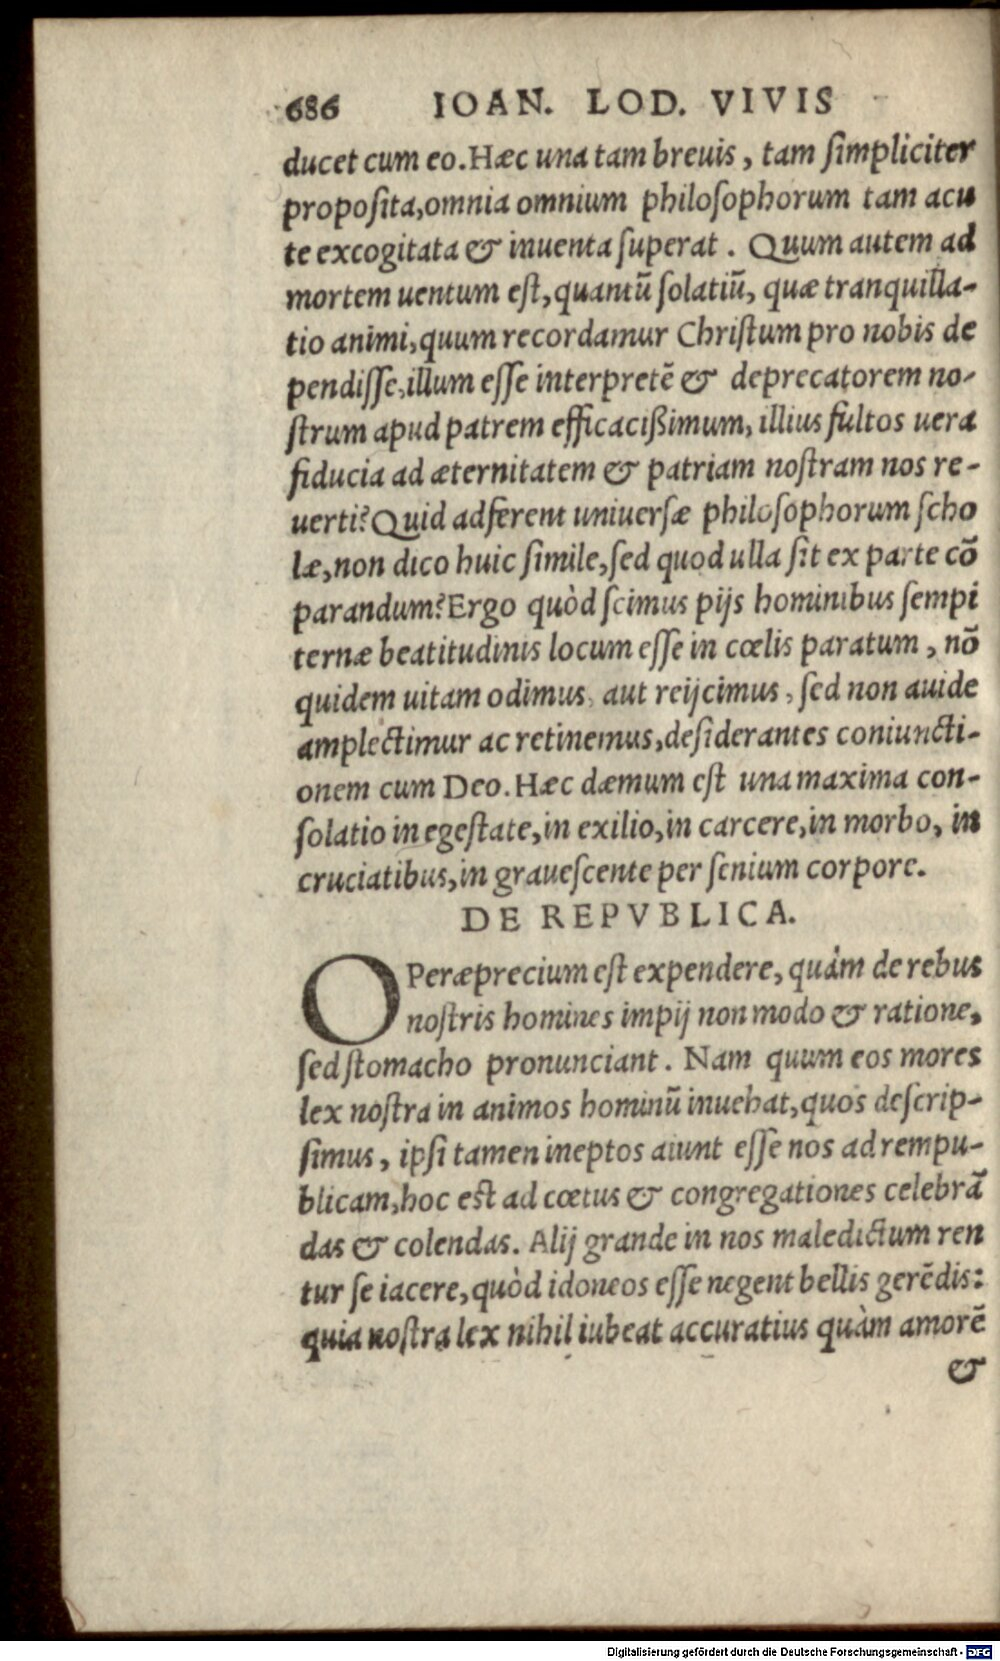 686 IOAN. LOD. VIVIS
ducet cum eo. Hæc una tam breuis, tam ſimpliciter
propoſita, omnia omnium philoſophorum tam acu
te excogitata & inuenta ſuperat. Quum autem ad
mortem uentum eſt, quantũ ſolatiũ, quæ tranquilla-
tio animi, quum recordamur Chriſtum pro nobis de
pendiſſe, illum eſſe interpretẽ & deprecatorem no-
ſtrum apud patrem efficacißimum, illius fultos uera
fiducia ad æternitatem & patriam noſtram nos re-
uerti? Quid adferent uniuerſæ philoſophorum ſcho
læ, non dico huic ſimile, ſed quod ulla ſit ex parte cõ
parandum? Ergo quòd ſcimus pijs hominibus ſempi
ternæ beatitudinis locum eſſe in cœlis paratum, nõ
quidem uitam odimus, aut reijcimus, ſed non auide
amplectimur ac retinemus, deſiderantes coniuncti-
onem cum Deo. Hæc dæmum eſt una maxima con-
ſolatio in egeſtate, in exilio, in carcere, in morbo, in
cruciatibus, in graueſcente per ſenium corpore.
DE REPVBLICA.
OPeræprecium eſt expendere, quàm de rebus
noſtris homines impij non modo & ratione,
ſed ſtomacho pronunciant. Nam quum eos mores
lex noſtra in animos hominũ inuehat, quos deſcrip-
ſimus, ipſi tamen ineptos aiunt eſſe nos ad rempu-
blicam, hoc eſt ad cœtus & congregationes celebrã
das & colendas. Alij grande in nos maledictum ren
tur ſe iacere, quòd idoneos eſſe negent bellis gerẽdis:
quia noſtra lex nihil iubeat accuratius quàm amorẽ
&
Digitalisierung gefördert durch die Deutsche Forschungsgemeinschaft - DFG